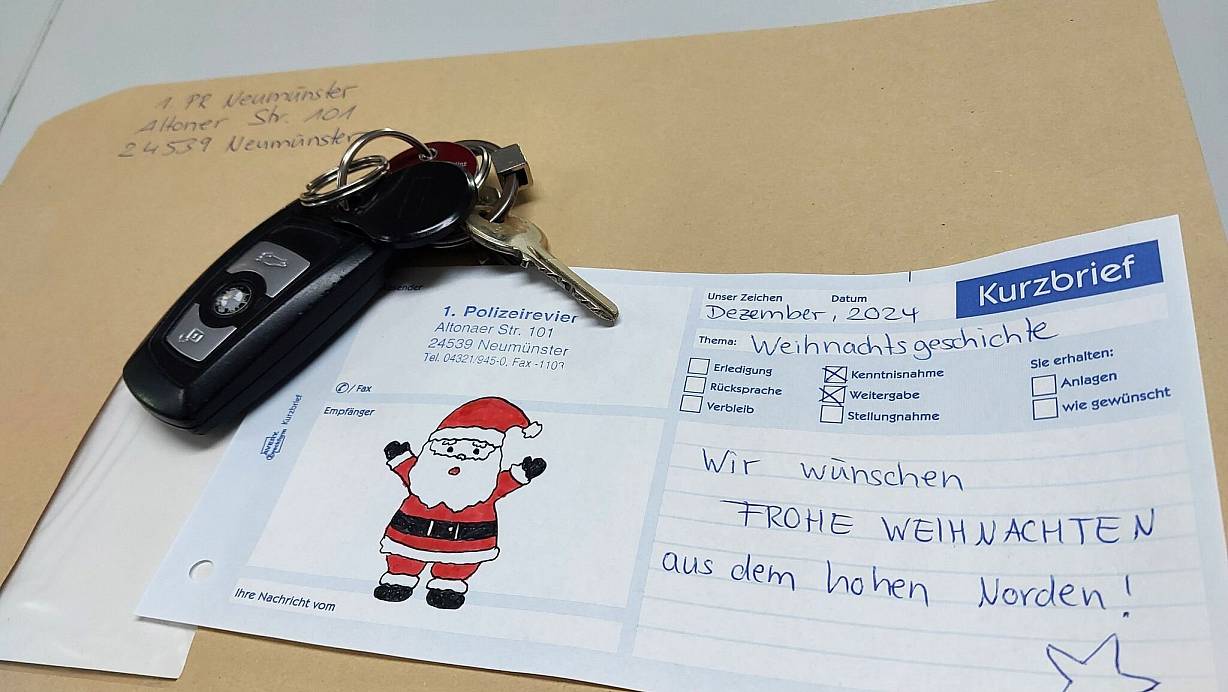 1. PR Neumünster
Altoner Str. 101
24539 Neumünster
Kurzbrief
Absender
1. Polizeirevier
Altonaer Str. 101
24539 Neumünster
Tel. 04321/945-0, Fax -1103
✆/ Fax
Empfänger
Kurzbrief
Ihre Nachricht vom
Unser Zeichen Datum
Dezember, 2024
Thema: Weihnachtsgeschichte
Erledigung
Rücksprache
Verbleib
Kenntnisnahme
Weitergabe
Stellungnahme
Sie erhalten:
Anlagen
wie gewünscht
Wir wünschen
FROHE WEIHNACHTEN
aus dem hohen Norden!